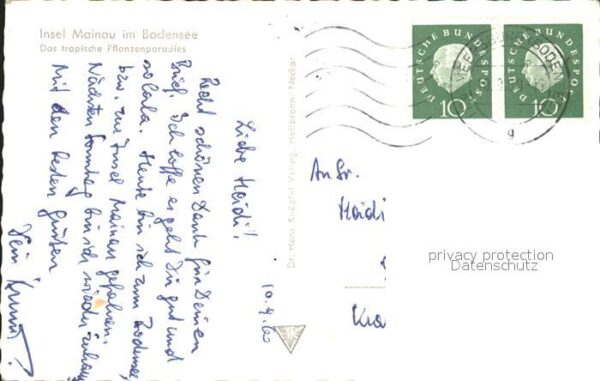 Insel Mainau im Bodensee
Das tropische Pflanzenparadies
10.9.60
Liebe Heidi!
Recht schönen Dank für Deinen
Brief. Ich hoffe es geht Dir gut und
Heute bin ich zum Bodensee
bzw. zur Insel Mainau gefahren.
Nächsten Sonntag bin ich wieder
Mit den besten Grüßen
Dein
Dr. Hans Knöpfel Verlag, Heilbronn/Neckar
DEUTSCHE BUNDESPOST
10
DEUTSCHE BUNDESPOST
10
An Fr.
Heidi
Kra
privacy protection
Datenschutz